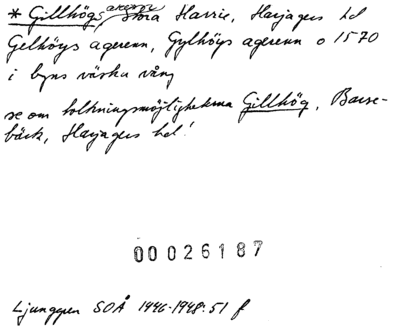 * Gillhögsarenn Stora Harrie, Harjagers hd
Gelhöys agerenn, Gylhöys agerenn o 1570
i byns västra vång
se om tolkningsmöjligheterna Gillhög, Barse-
bäck, Harjagers hd!
00026187
Ljunggren SOÅ 1946-1948: 51 f